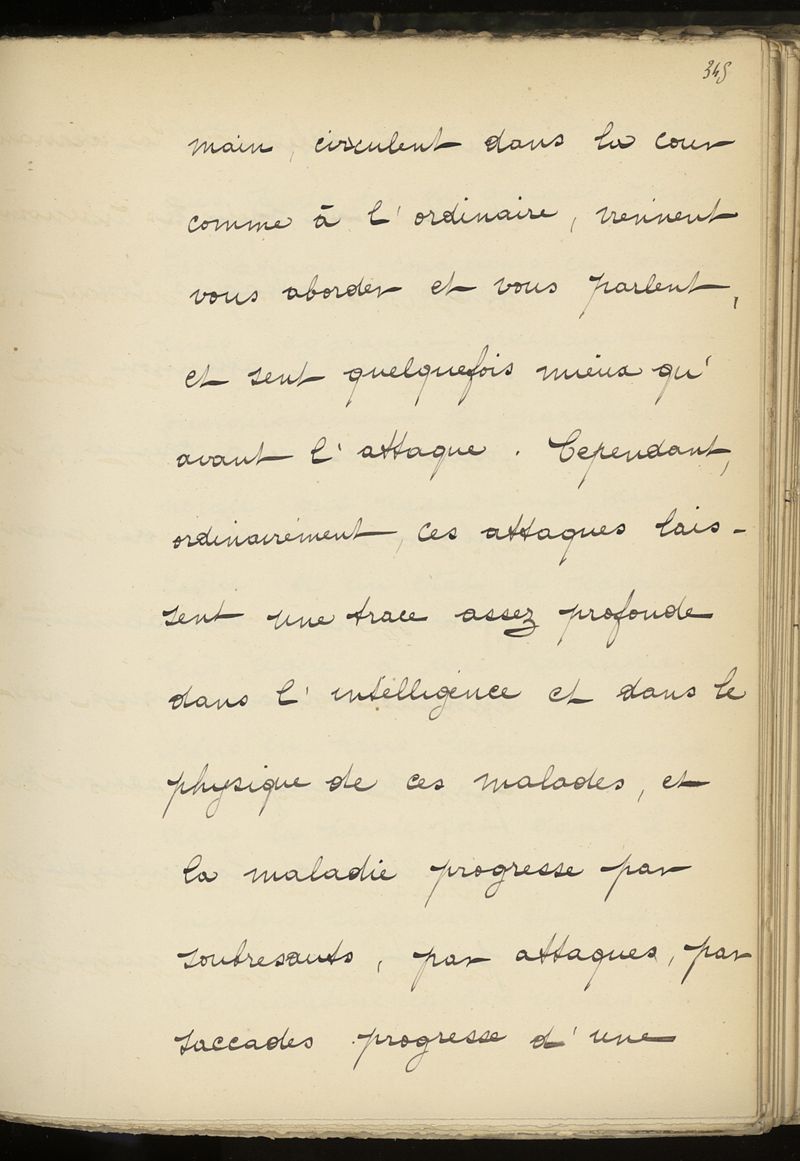 345
main, circulent dans la cour
comme à l'ordinaire, viennent
vous aborder et vous parlent,
et sent quelquefois mieux qu'
avant l'attaque. Cependant,
ordinairement, ces attaques lais-
sent une trace assez profonde
dans l'intelligence et dans le
physique de ces malades, et
la maladie progresse par
soubresauts, par attaques, par
saccades progresse d'une